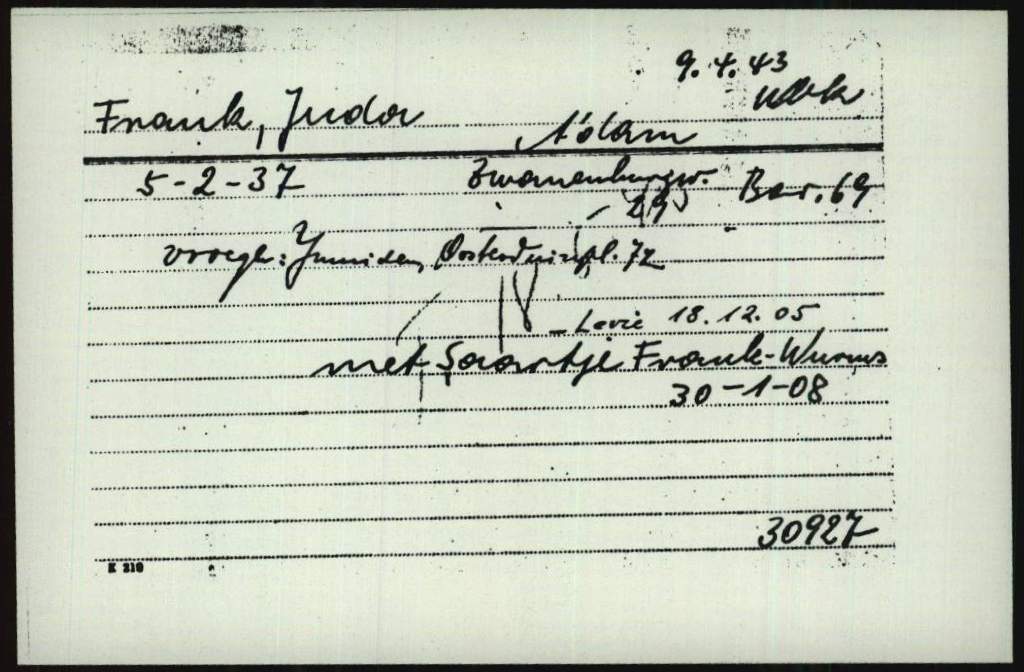 9.4.43
Frank, Juda
A'dam
5-2-37 Zwanenburgw. Bar. 69
29
vroeger: Ymuiden, Oosterduinpl. 72
- Levie 18.12.05
met Saartje Frank-Wurms
30-1-08
30927
K 210